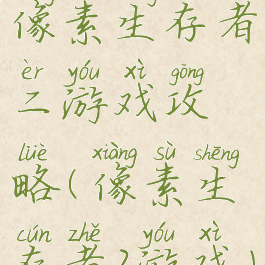 像素生存者
èr yóu xì gōng
二游戏攻
lüè xiàng sù shēng
略(像素生
cún zhě yóu xì
存者2游戏)